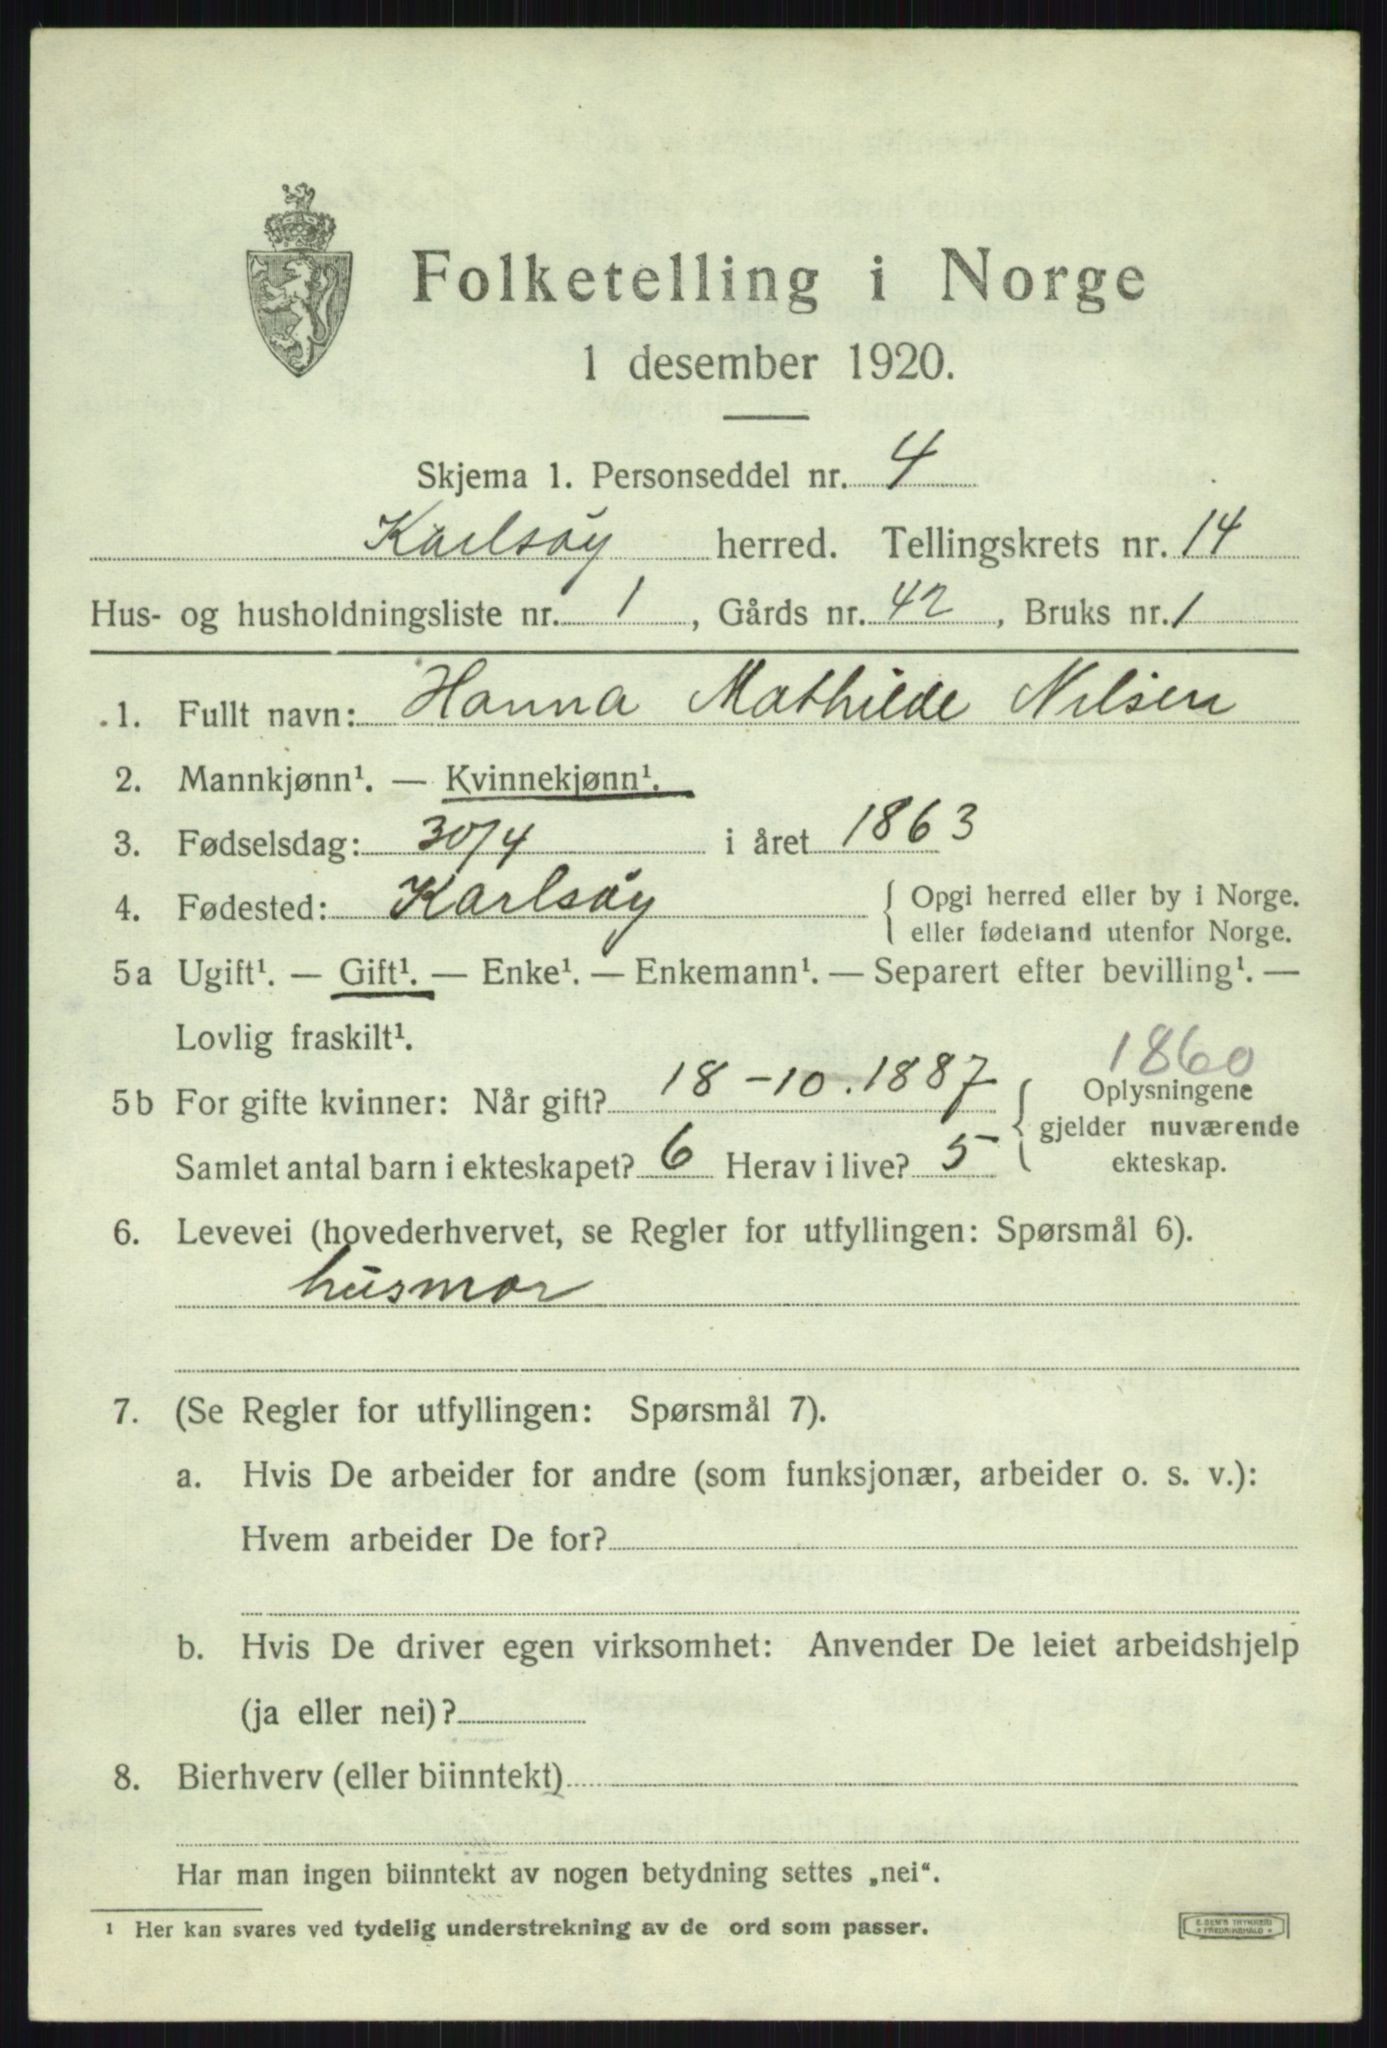 Folketelling i Norge
1 desember 1920.
Skjema 1. Personseddel nr. 4
Karlsøy herred. Tellingskrets nr. 14
Hus- og husholdningsliste nr. 1, Gårds nr. 42, Bruks nr. 1
1. Fullt navn: Hanna Mathilde Nilsen
2. Mannkjønn¹. — Kvinnekjønn¹.
3. Fødselsdag: 30/4 i året 1863
4. Fødested: Karlsøy { Opgi herred eller by i Norge.
eller fødeland utenfor Norge.
5a Ugift¹. — Gift¹. — Enke¹. — Enkemann¹. — Separert efter bevilling¹. —
Lovlig fraskilt¹.
1860
5b For gifte kvinner: Når gift? 18-10.1887 { Oplysningene
gjelder nuværende
ekteskap.
Samlet antal barn i ekteskapet? 6 Herav i live? 5
6. Levevei (hovederhvervet, se Regler for utfyllingen: Spørsmål 6).
husmor
7. (Se Regler for utfyllingen: Spørsmål 7).
a. Hvis De arbeider for andre (som funksjonær, arbeider o. s. v.):
Hvem arbeider De for?
b. Hvis De driver egen virksomhet: Anvender De leiet arbeidshjelp
(ja eller nei)?
8. Bierhverv (eller biinntekt)
Har man ingen biinntekt av nogen betydning settes „nei“.
¹ Her kan svares ved tydelig understrekning av de ord som passer.
E. SEM'S TRYKKERI
FREDRIKSHALD